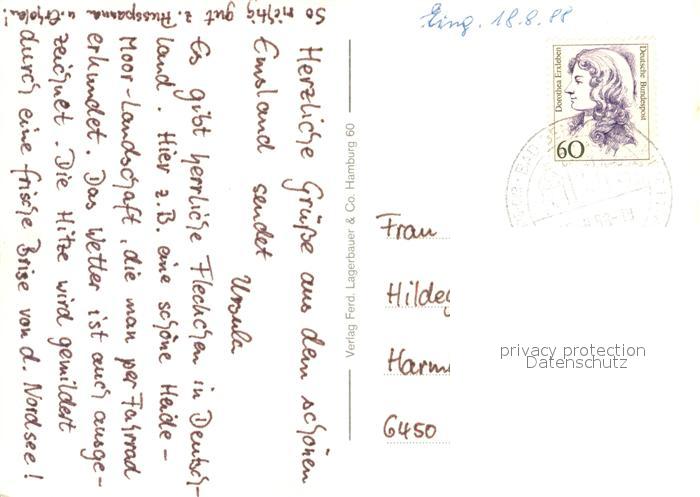 Herzliche Grüße aus dem schönen
Emsland sendet
Ursula
Es gibt herrliche Fleckchen in Deutsch-
land. Hier z.B. eine schöne Heide-
Moor-Landschaft, die man per Fahrrad
erkundet. Das Wetter ist auch ausge-
zeichnet. Die Hitze wird gemildert
durch eine frische Brise von d. Nordsee!
So richtig gut z. Ausspannen u. Erholen!
Verlag Ferd. Lagerbauer & Co. Hamburg 60
Eing. 18.8.88
Dorothea Erxleben
Deutsche Bundespost
60
Frau
Hilde
Harm
6450
privacy protection
Datenschutz